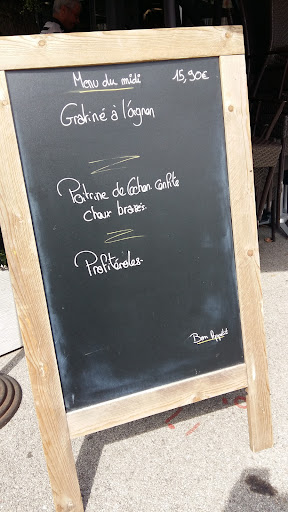 Menu du midi 15,90€
Gratiné à l'oignon
Poitrine de Cochon Confite
choux braisés.
Profiteroles.
Bon Appétit